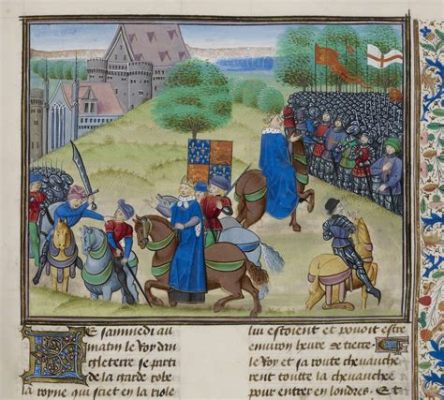 Le samedi au
matin le Roy dan
gleterre se parti
de la garde robe
la royne qui siet en la riole
lui estoient et pouoit estre
environ heure de tierce
le Roy et sa route chevauche
rent toutte la chevauchee
pour entrer en londres. Et